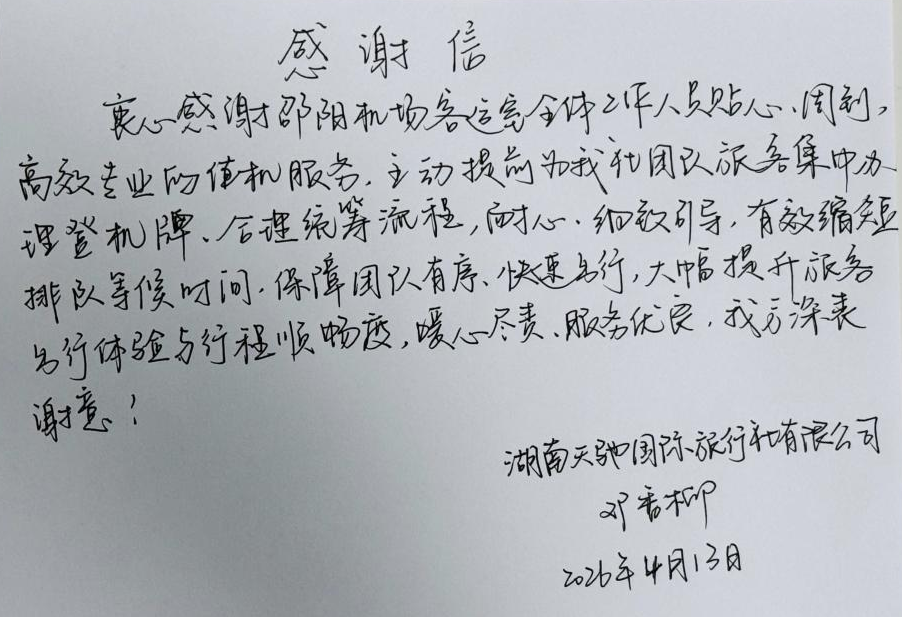 感谢信
衷心感谢邵阳机场客运室全体工作人员贴心、周到,
高效专业的值机服务.主动提前为我社团队旅客集中办
理登机牌、合理统筹流程,耐心.细致引导,有效缩短
排队等候时间.保障团队有序、快速出行,大幅提升旅客
出行体验与行程顺畅度,暖心尽责、服务优良.我方深表
谢意!
湖南天驰国际旅行社有限公司
邓香柳
2026年4月13日